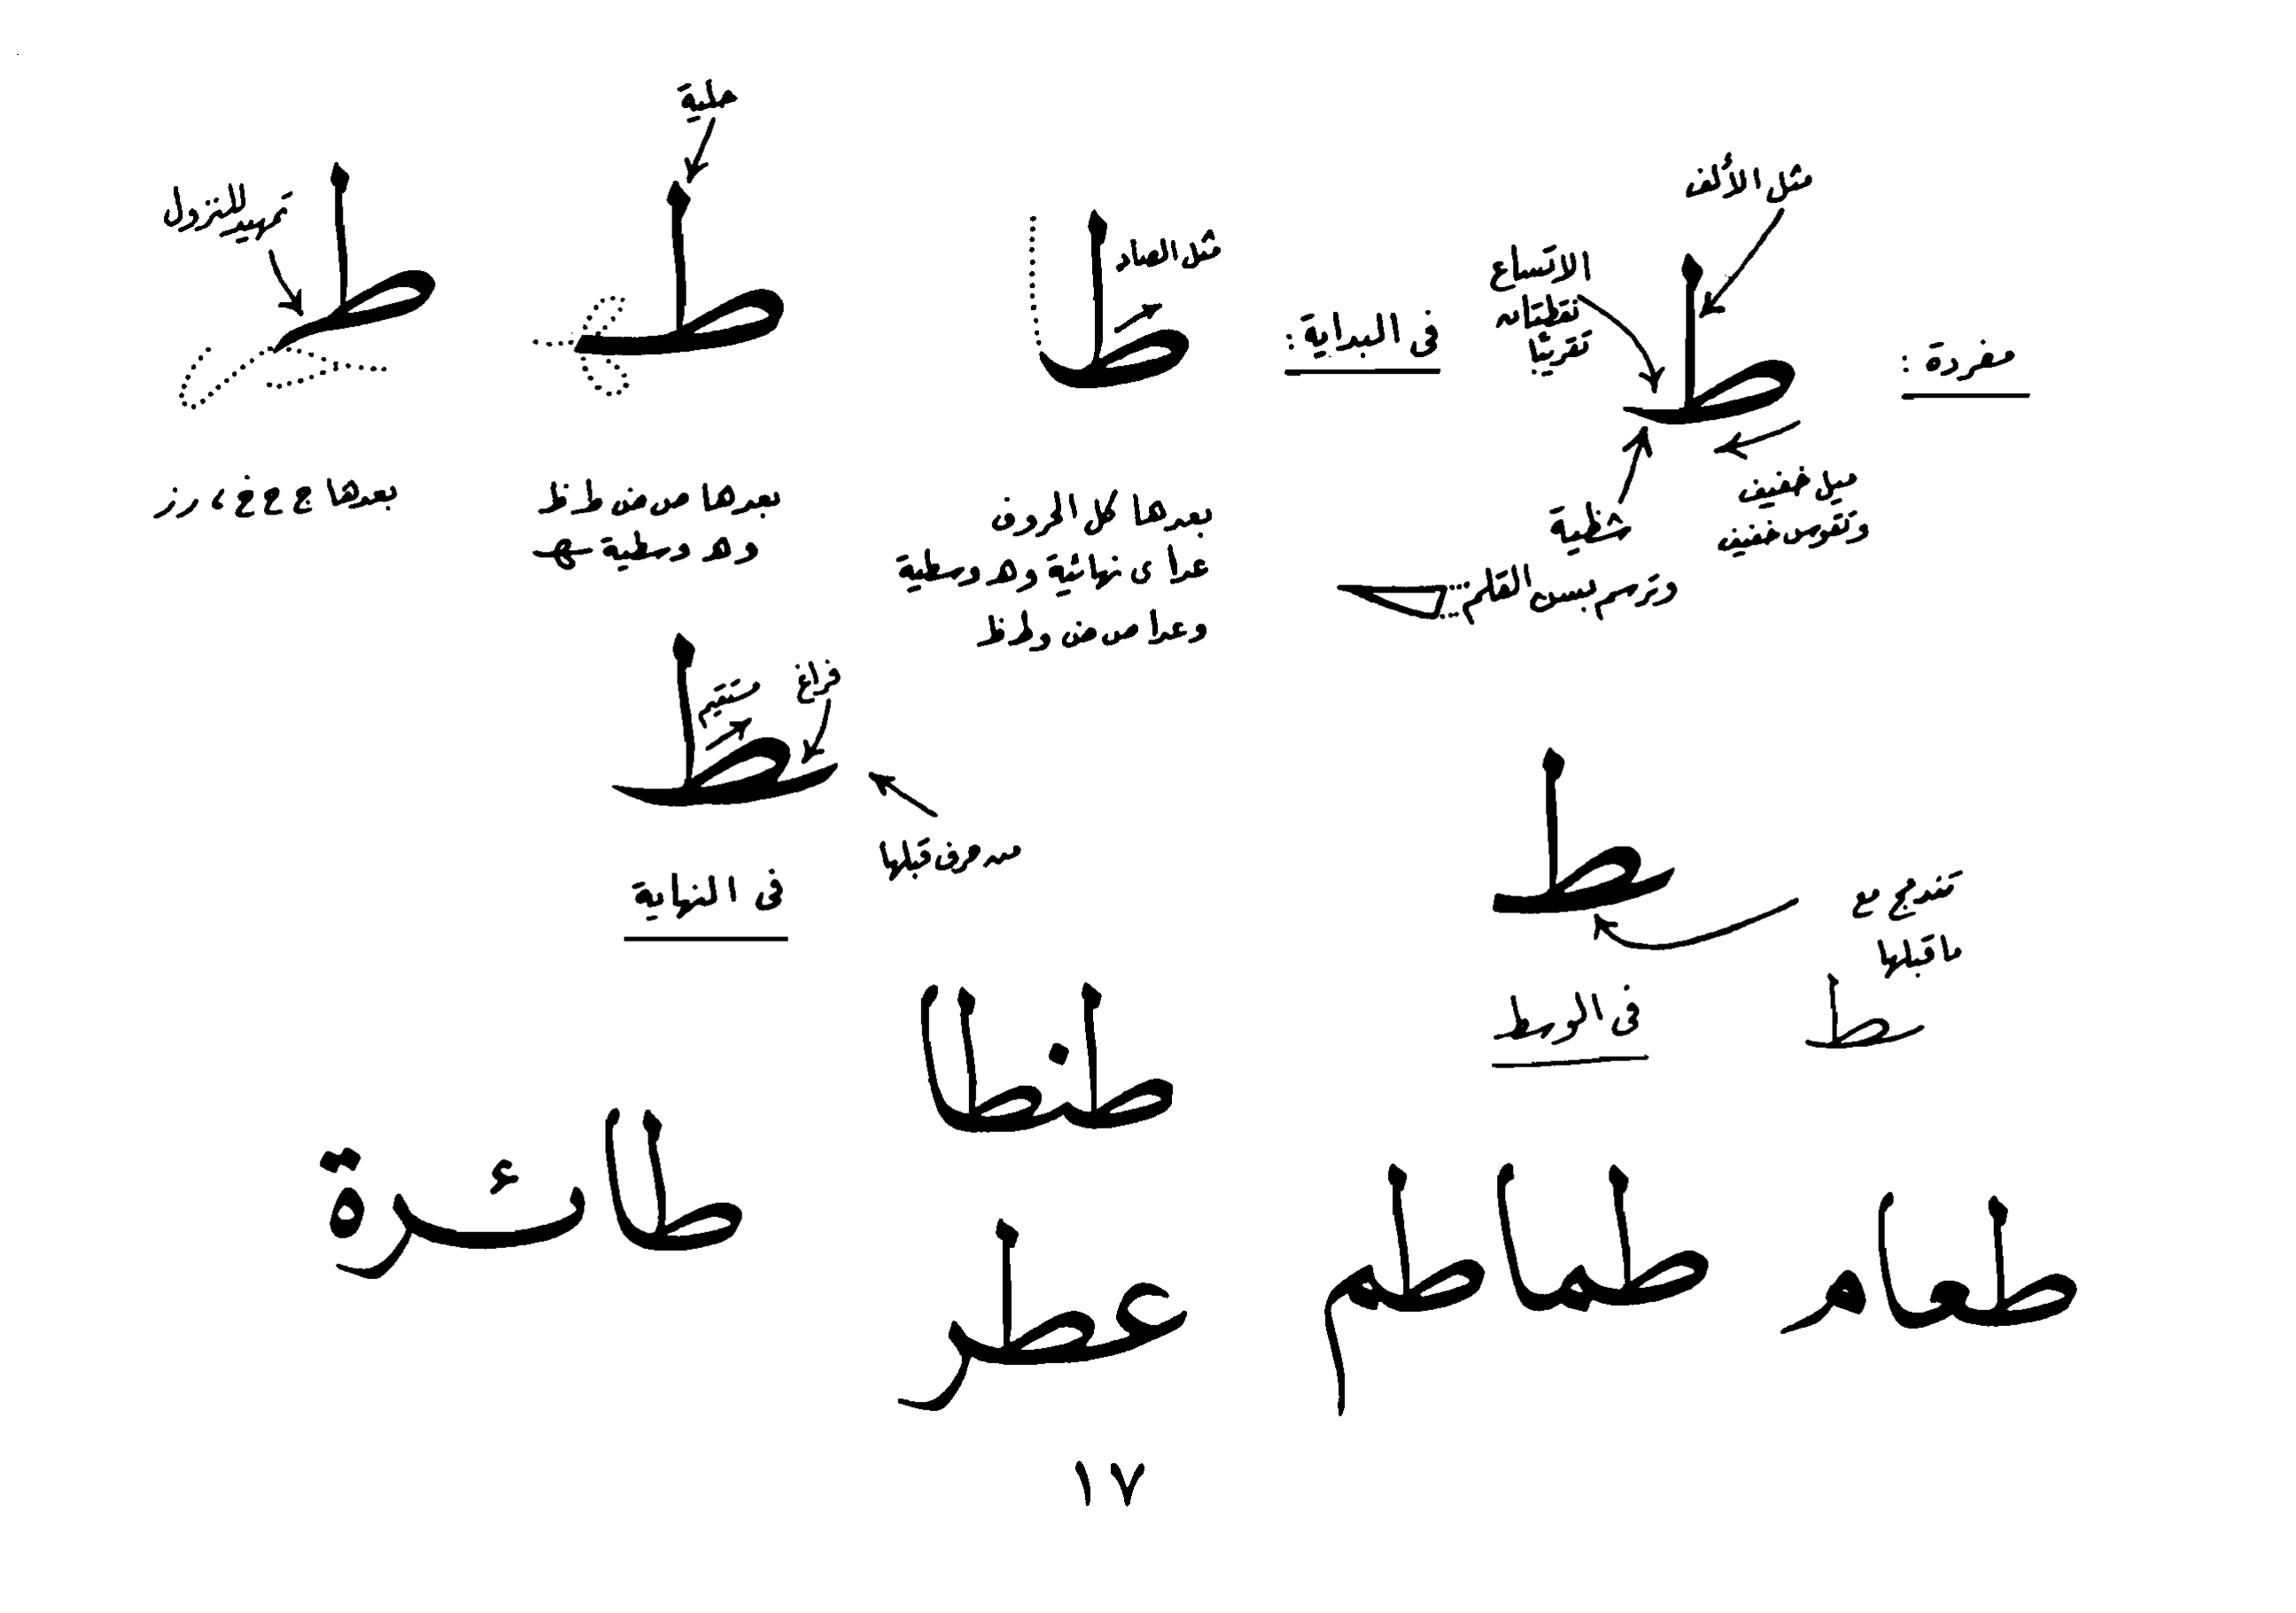 مفردة :
مثل الألف
الاتساع
نقطتان
تقريبًا
ط
ميل خفيف
وتقوس خفيف
شظية
وترسم بسن القلم...
فى البداية :
مثل الصاد
ط
بعدها كل الحروف
عدا ى نهائية وهـ وسطية
وعدا ص ض و ط ظ
حلية
ط
بعدها ص ض ط ظ
وهـ وسطية ـهـ
تمهيد للنزول
ط
بعدها ج ح خ ، ر ز
تندمج مع
ما قبلها
ـط
ـط
فى الوسط
فراغ
مستقيم
ـط
من حرف قبلها
فى النهاية
طنطا
طعام
طماطم
عطر
طائرة
١٧